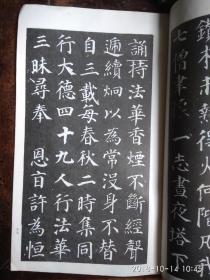 鑽木未熟得火何階凡我
七僧聿懷一志晝夜塔下
誦持法華香煙不斷經聲
遞續炯以為常沒身不替
自三載每春秋二時集同
行大德四十九人行法華
三昧尋奉 恩旨許為恒